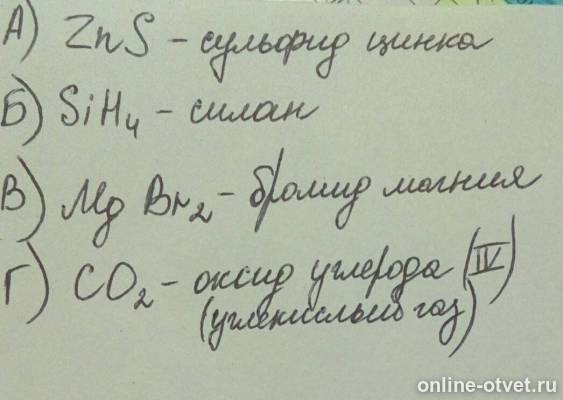 А) ZnS – сульфид цинка
Б) SiH4 – силан
В) MgBr2 – бромид магния
Г) CO2 – оксид углерода (IV)
(углекислый газ)
online-otvet.ru